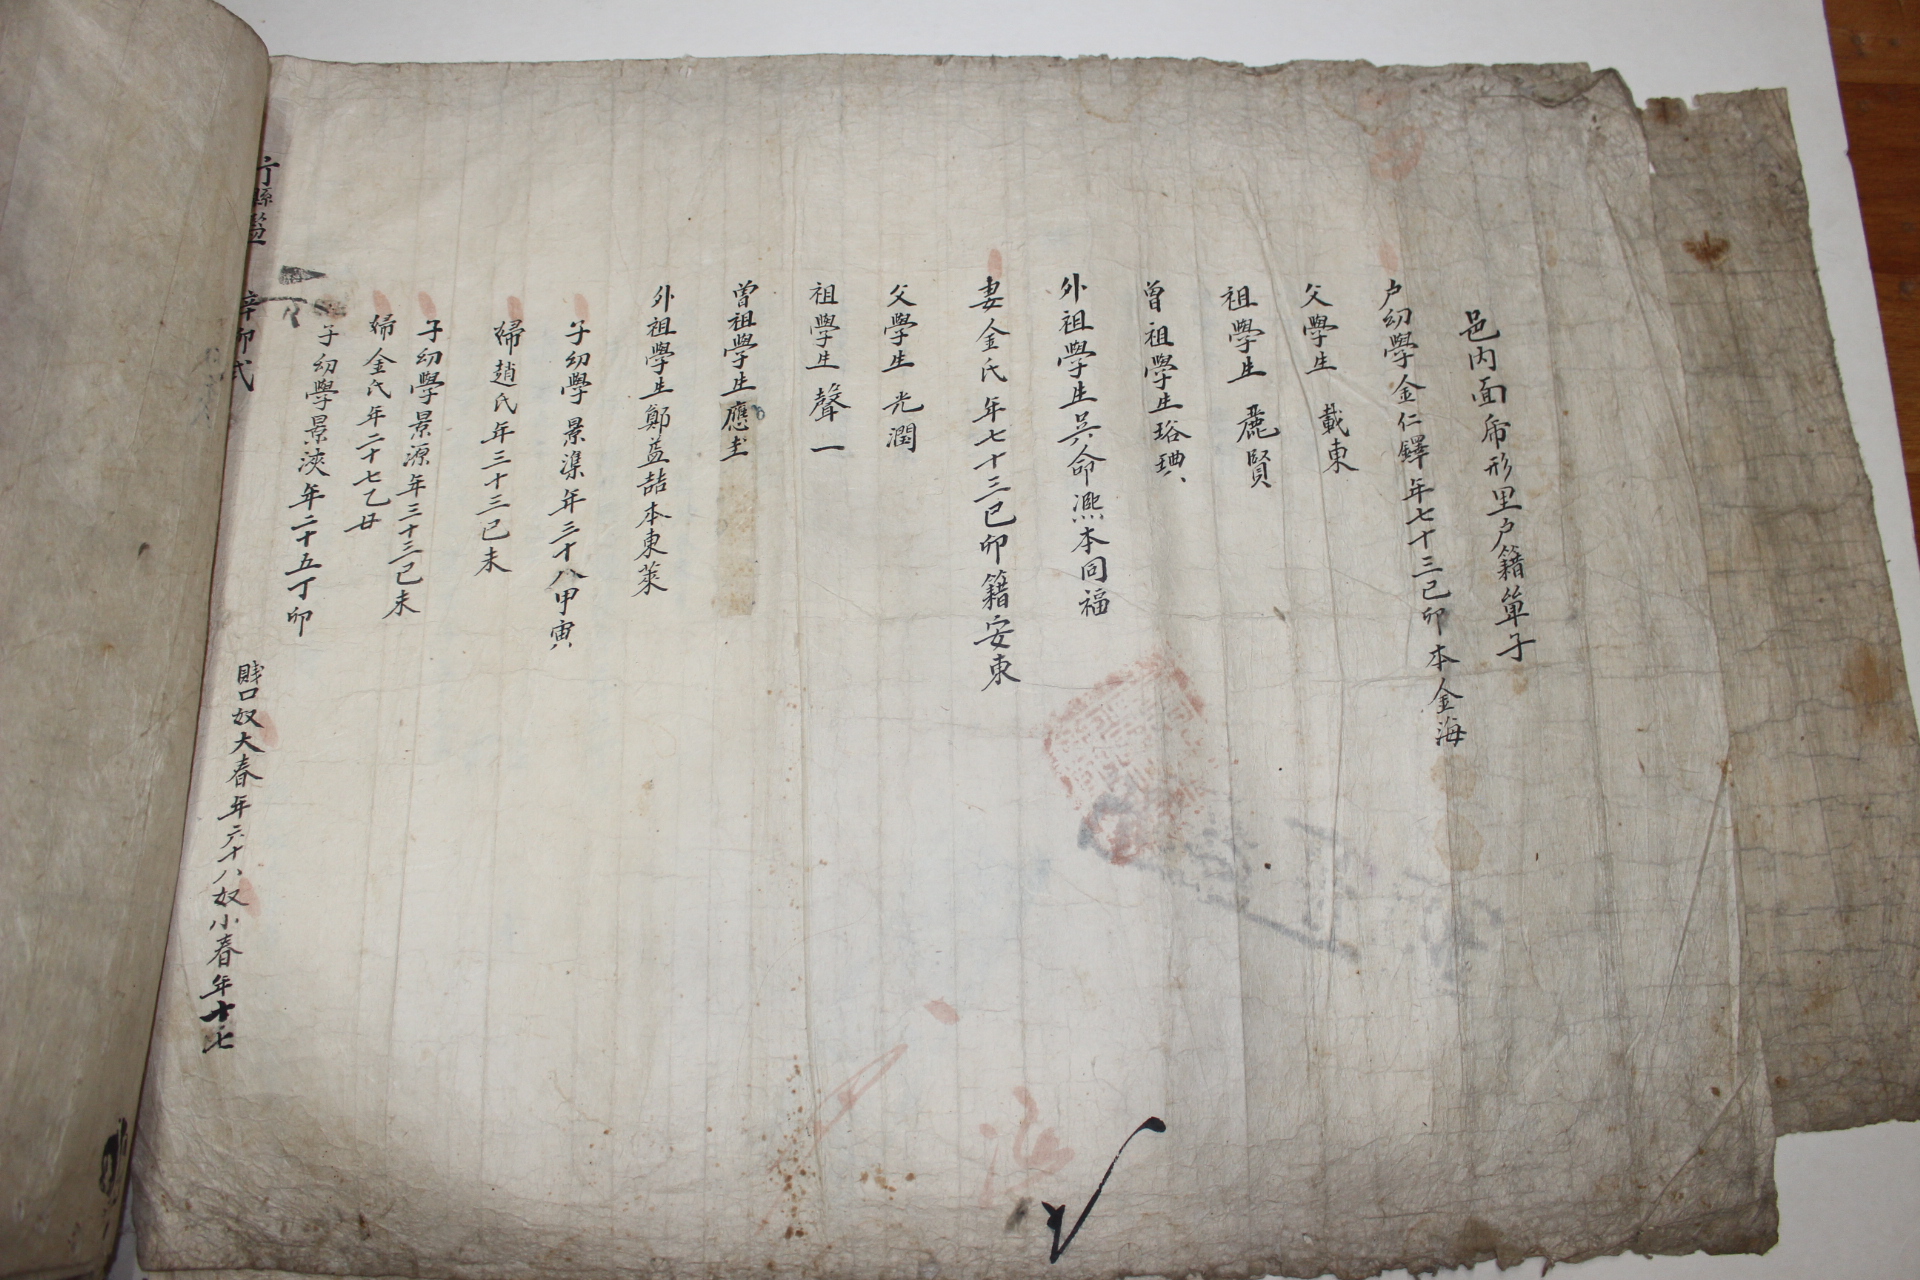 邑内面帍形里戶籍單子
戶幼學金仁鐸年七十三己卯本金海
父學生 載東
祖學生 麗賢
曾祖學生珞琠
外祖學生吳命凞本同福
妻金氏年七十三己卯籍安東
父學生光潤
祖學生聲一
曾祖學生應圭
外祖學生鄭益喆本東萊
子幼學景潗年三十八甲寅
婦趙氏年三十三己未
子幼學景源年三十三己未
婦金氏年二十七乙丑
子幼學景浹年二十五丁卯
賤口奴大春年六十八奴小春年十七
辛卯式
行縣監